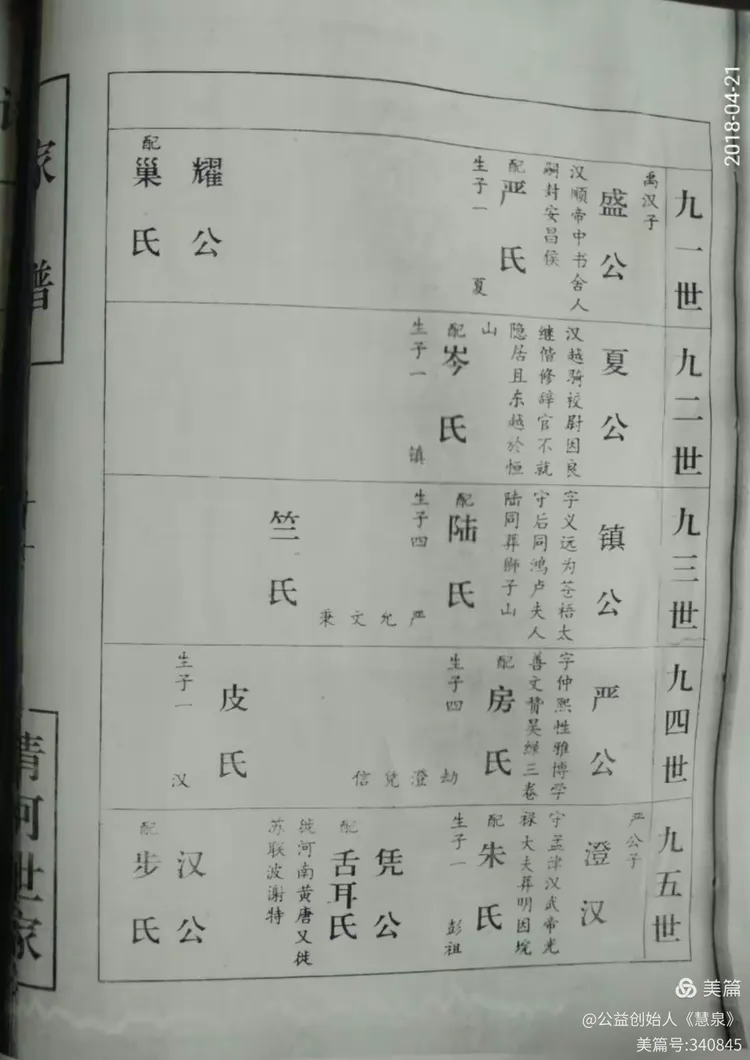 2018-04-21
家谱
清河世家
九一世
禹汉子
盛公
汉顺帝中书舍人
嗣封安昌侯
配
严氏
生子一
夏
耀公
配
巢氏
九二世
夏公
汉越骑校尉因良
继偕修辞官不就
隐居且东越於恒
山
配
岑氏
生子一
镇
九三世
镇公
字义远为苍梧太
守后同鸿卢夫人
陆同葬狮子山
配
陆氏
生子四
严允文秉
竺氏
九四世
严公
字仲熙性雅博学
善文赞吴绿三卷
配
房氏
生子四
劫澄凭信
皮氏
生子一
汉
九五世
严公子
澄汉
守孟津汉武帝光
禄大夫葬明因垸
配
朱氏
生子一
彭祖
凭公
配
舌耳氏
徙河南黄唐又徙
苏联波谢特
汉公
配
步氏
美篇
@公益创始人《慧泉》
美篇号:340845